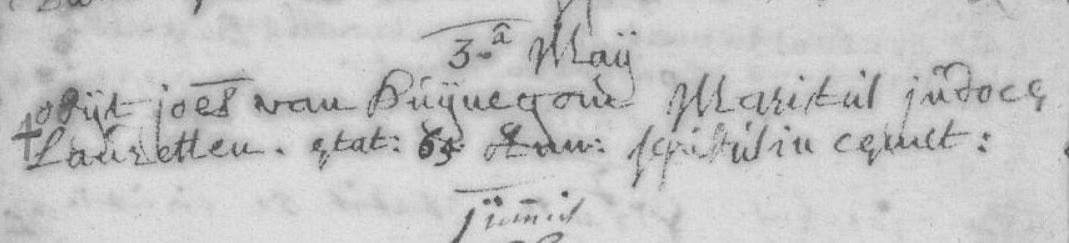 3.a Maÿ
obijt joēs van Puÿnegom Maritus judocę
Lauretten. ętat: 65 Ann: sepultus in cęmet:
Junius